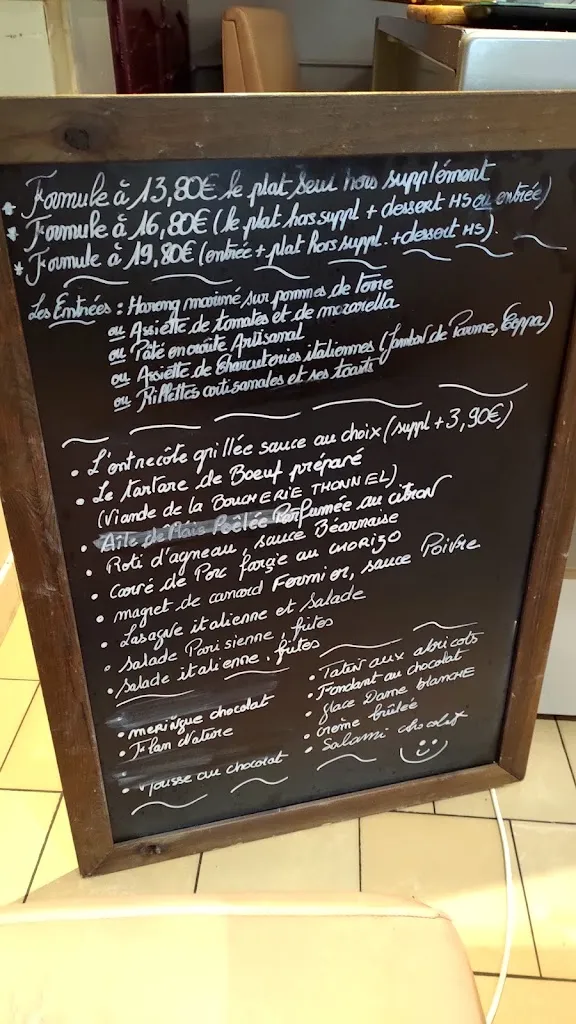 * Formule à 13,80€ le plat seul hors supplément
* Formule à 16,80€ (le plat hors suppl + dessert HS ou entrée)
* Formule à 19,80€ (entrée + plat hors suppl. + dessert HS).
Les Entrées : Hareng mariné sur pommes de terre
ou Assiette de tomates et de mozarella
ou Pâté en croûte Artisanal
ou Assiette de Charcuteries italiennes (Jambon de Parme, Coppa)
ou Rillettes artisanales et ses toasts
• L'entrecôte grillée sauce au choix (suppl + 3,90€)
• Le tartare de Boeuf préparé
(Viande de la BOUCHERIE THONNEL)
• Aile de Raie Poêlée Parfumée au citron
• Roti d'agneau, sauce Béarnaise
• Carré de Porc farçie au CHORIZO
• magret de canard Fermier, sauce Poivre
• Lasagne italienne et Salade
• Salade Parisienne, frites
• Salade italienne, frites
• meringue chocolat
• Flan Nature
• Mousse au chocolat
• Tatin aux abricots
• Fondant au chocolat
• glace Dame blanche
• Crème brûlée
• Salami chocolat